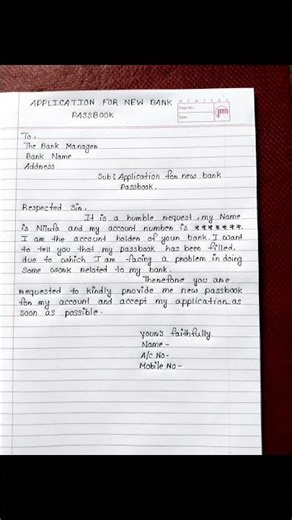 APPLICATION FOR NEW BANK
PASSBOOK
Page No.
Date
To,
The Bank Manager
Bank Name
Address
Sub: Application for new bank
Passbook.
Respected Sir,
It is a humble request, my Name
is Nilufa and my account number is *******.
I am the account holder of your bank. I want
to tell you that my passbook has been filled,
due to which I am facing a problem in doing
some work related to my bank.
Therefore you are
requested to kindly provide me new passbook
for my account and accept my application as
soon as possible.
yours faithfully
Name-
A/c No-
Mobile No-